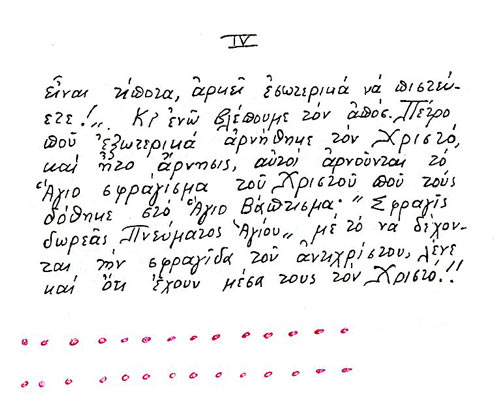 IV
εἶναι τίποτα, ἀρκεῖ ἐσωτερικά νά πιστεύ-
ετε!„ Κι ἐνῶ βλέπουμε τόν ἀπόσ. Πέτρο
πού ἐξωτερικά ἀρνήθηκε τόν Χριστό,
καί ἦτο ἄρνησις, αὐτοί ἀρνοῦνται τό
Ἅγιο σφράγισμα τοῦ Χριστοῦ πού τούς
δόθηκε στό Ἅγιο Βάπτισμα· “Σφραγίς
δωρεᾶς Πνεύματος Ἁγίου„ μέ τό νά δέχον-
ται τήν σφραγῖδα τοῦ ἀντιχρίστου, λένε
καί ὅτι ἔχουν μέσα τους τόν Χριστό!!